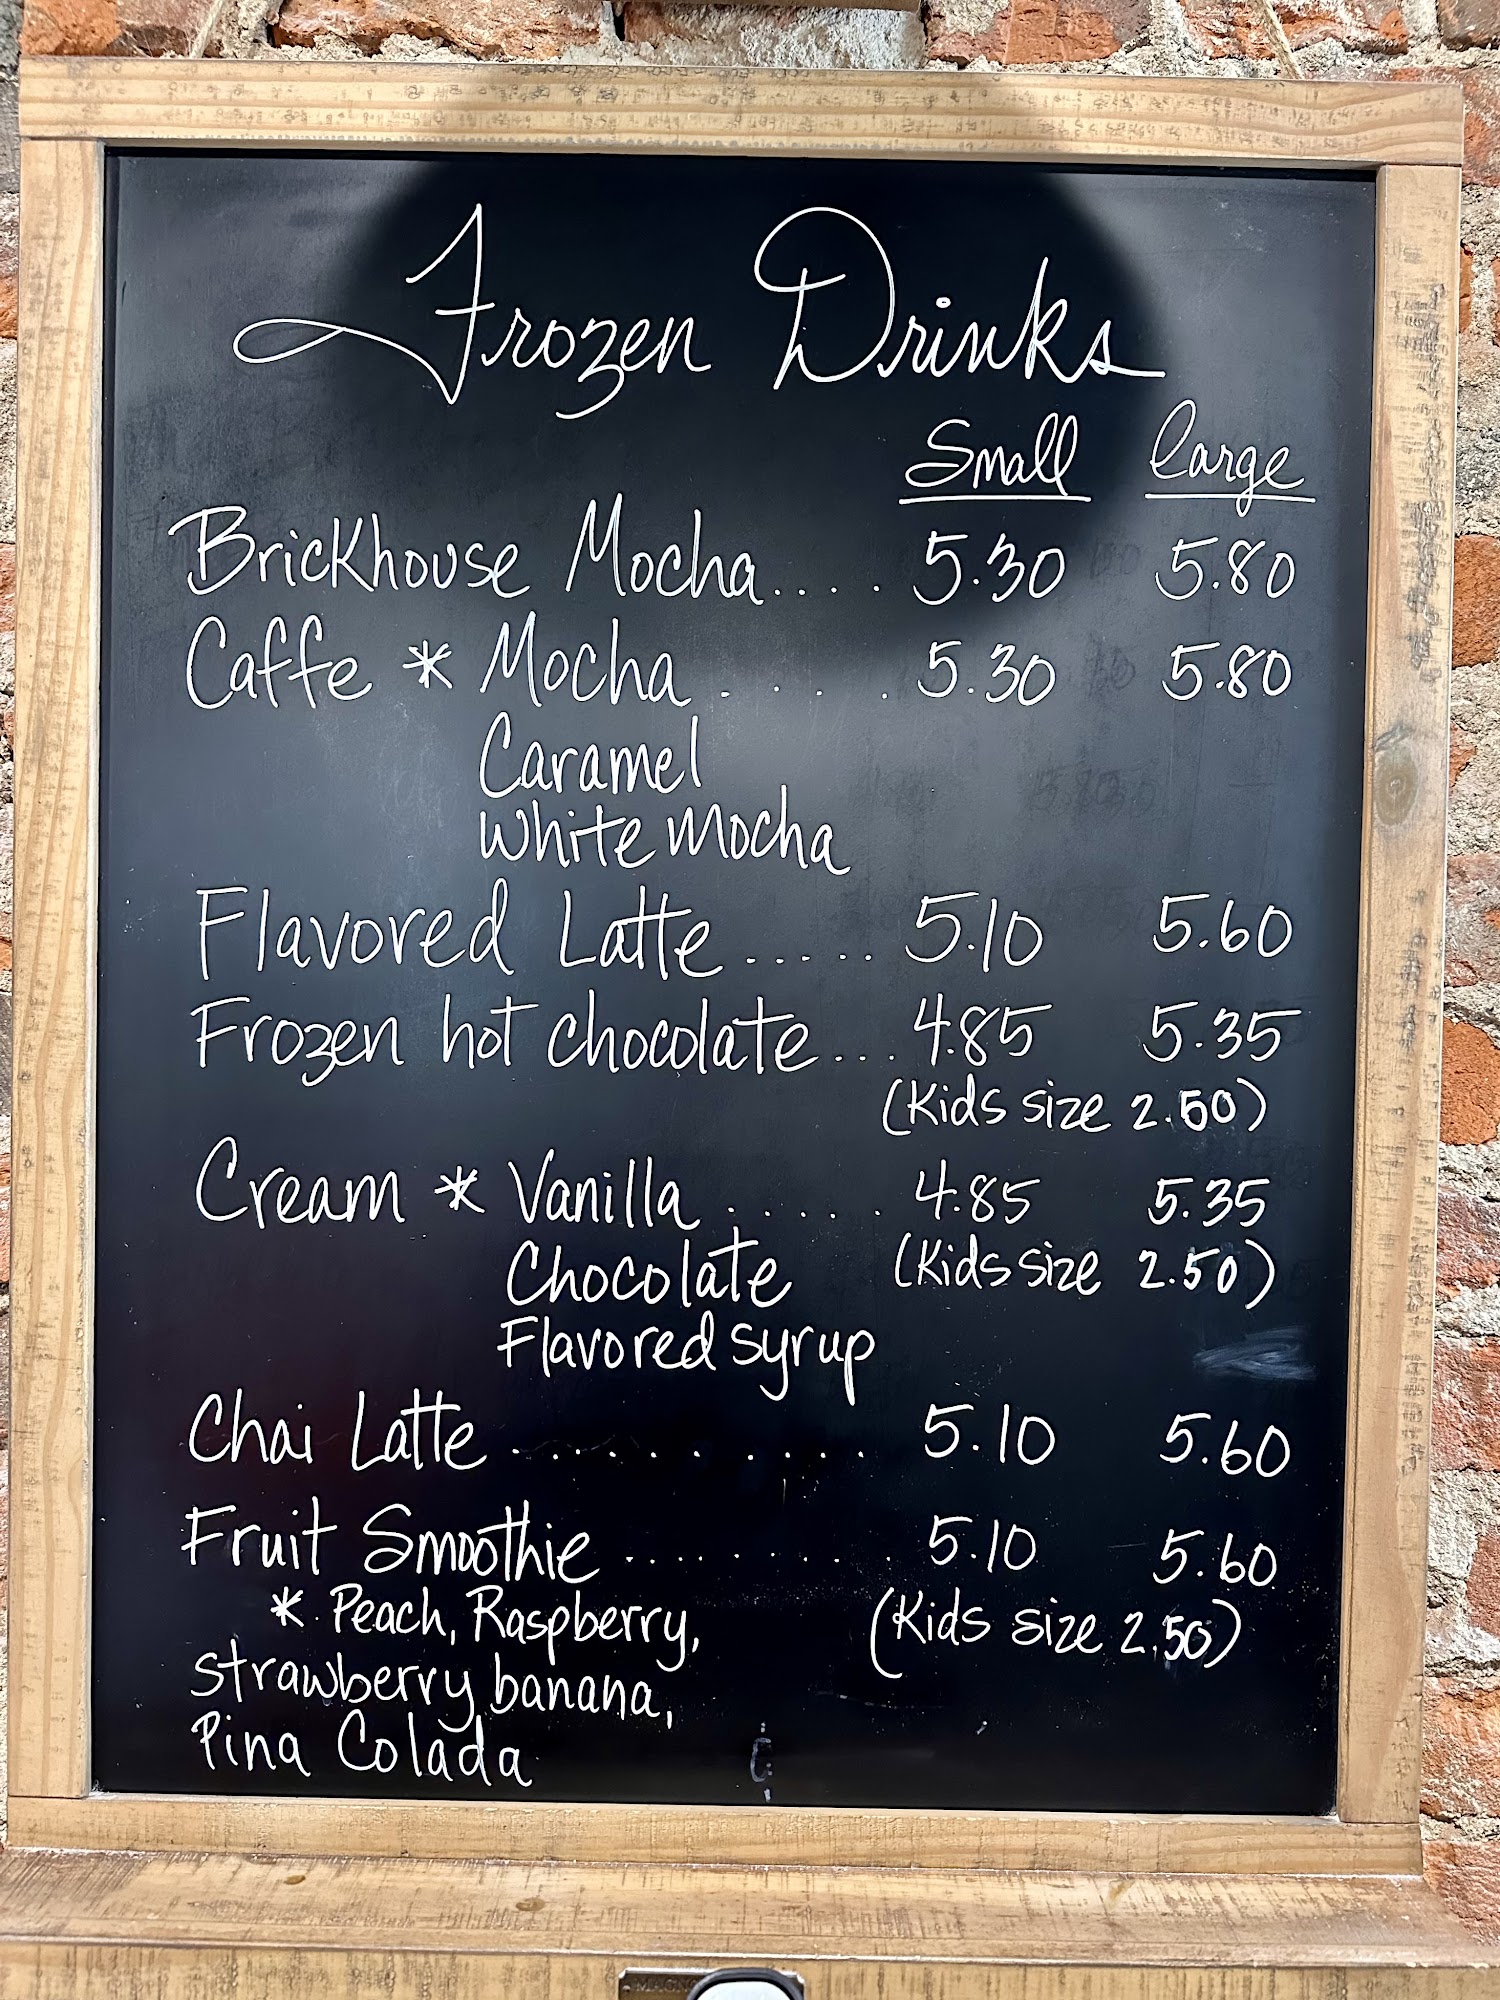 Frozen Drinks
Small Large
Brickhouse Mocha.... 5.30 5.80
Caffe * Mocha . . . . 5.30 5.80
Caramel
White Mocha
Flavored Latte ..... 5.10 5.60
Frozen hot chocolate... 4.85 5.35
(Kids size 2.50)
Cream * Vanilla ..... 4.85 5.35
Chocolate (Kids size 2.50)
Flavored syrup
Chai Latte .......... 5.10 5.60
Fruit Smoothie .......... 5.10 5.60
* Peach, Raspberry, (Kids size 2.50)
strawberry banana,
Pina Colada